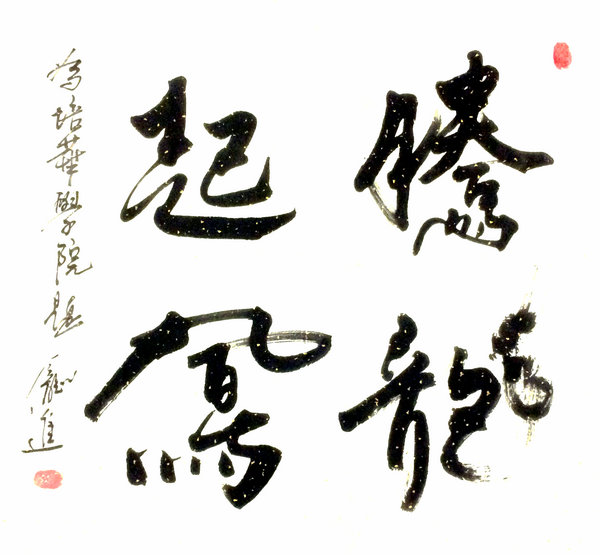 騰龍
起鳳
為培華學院題 龐進